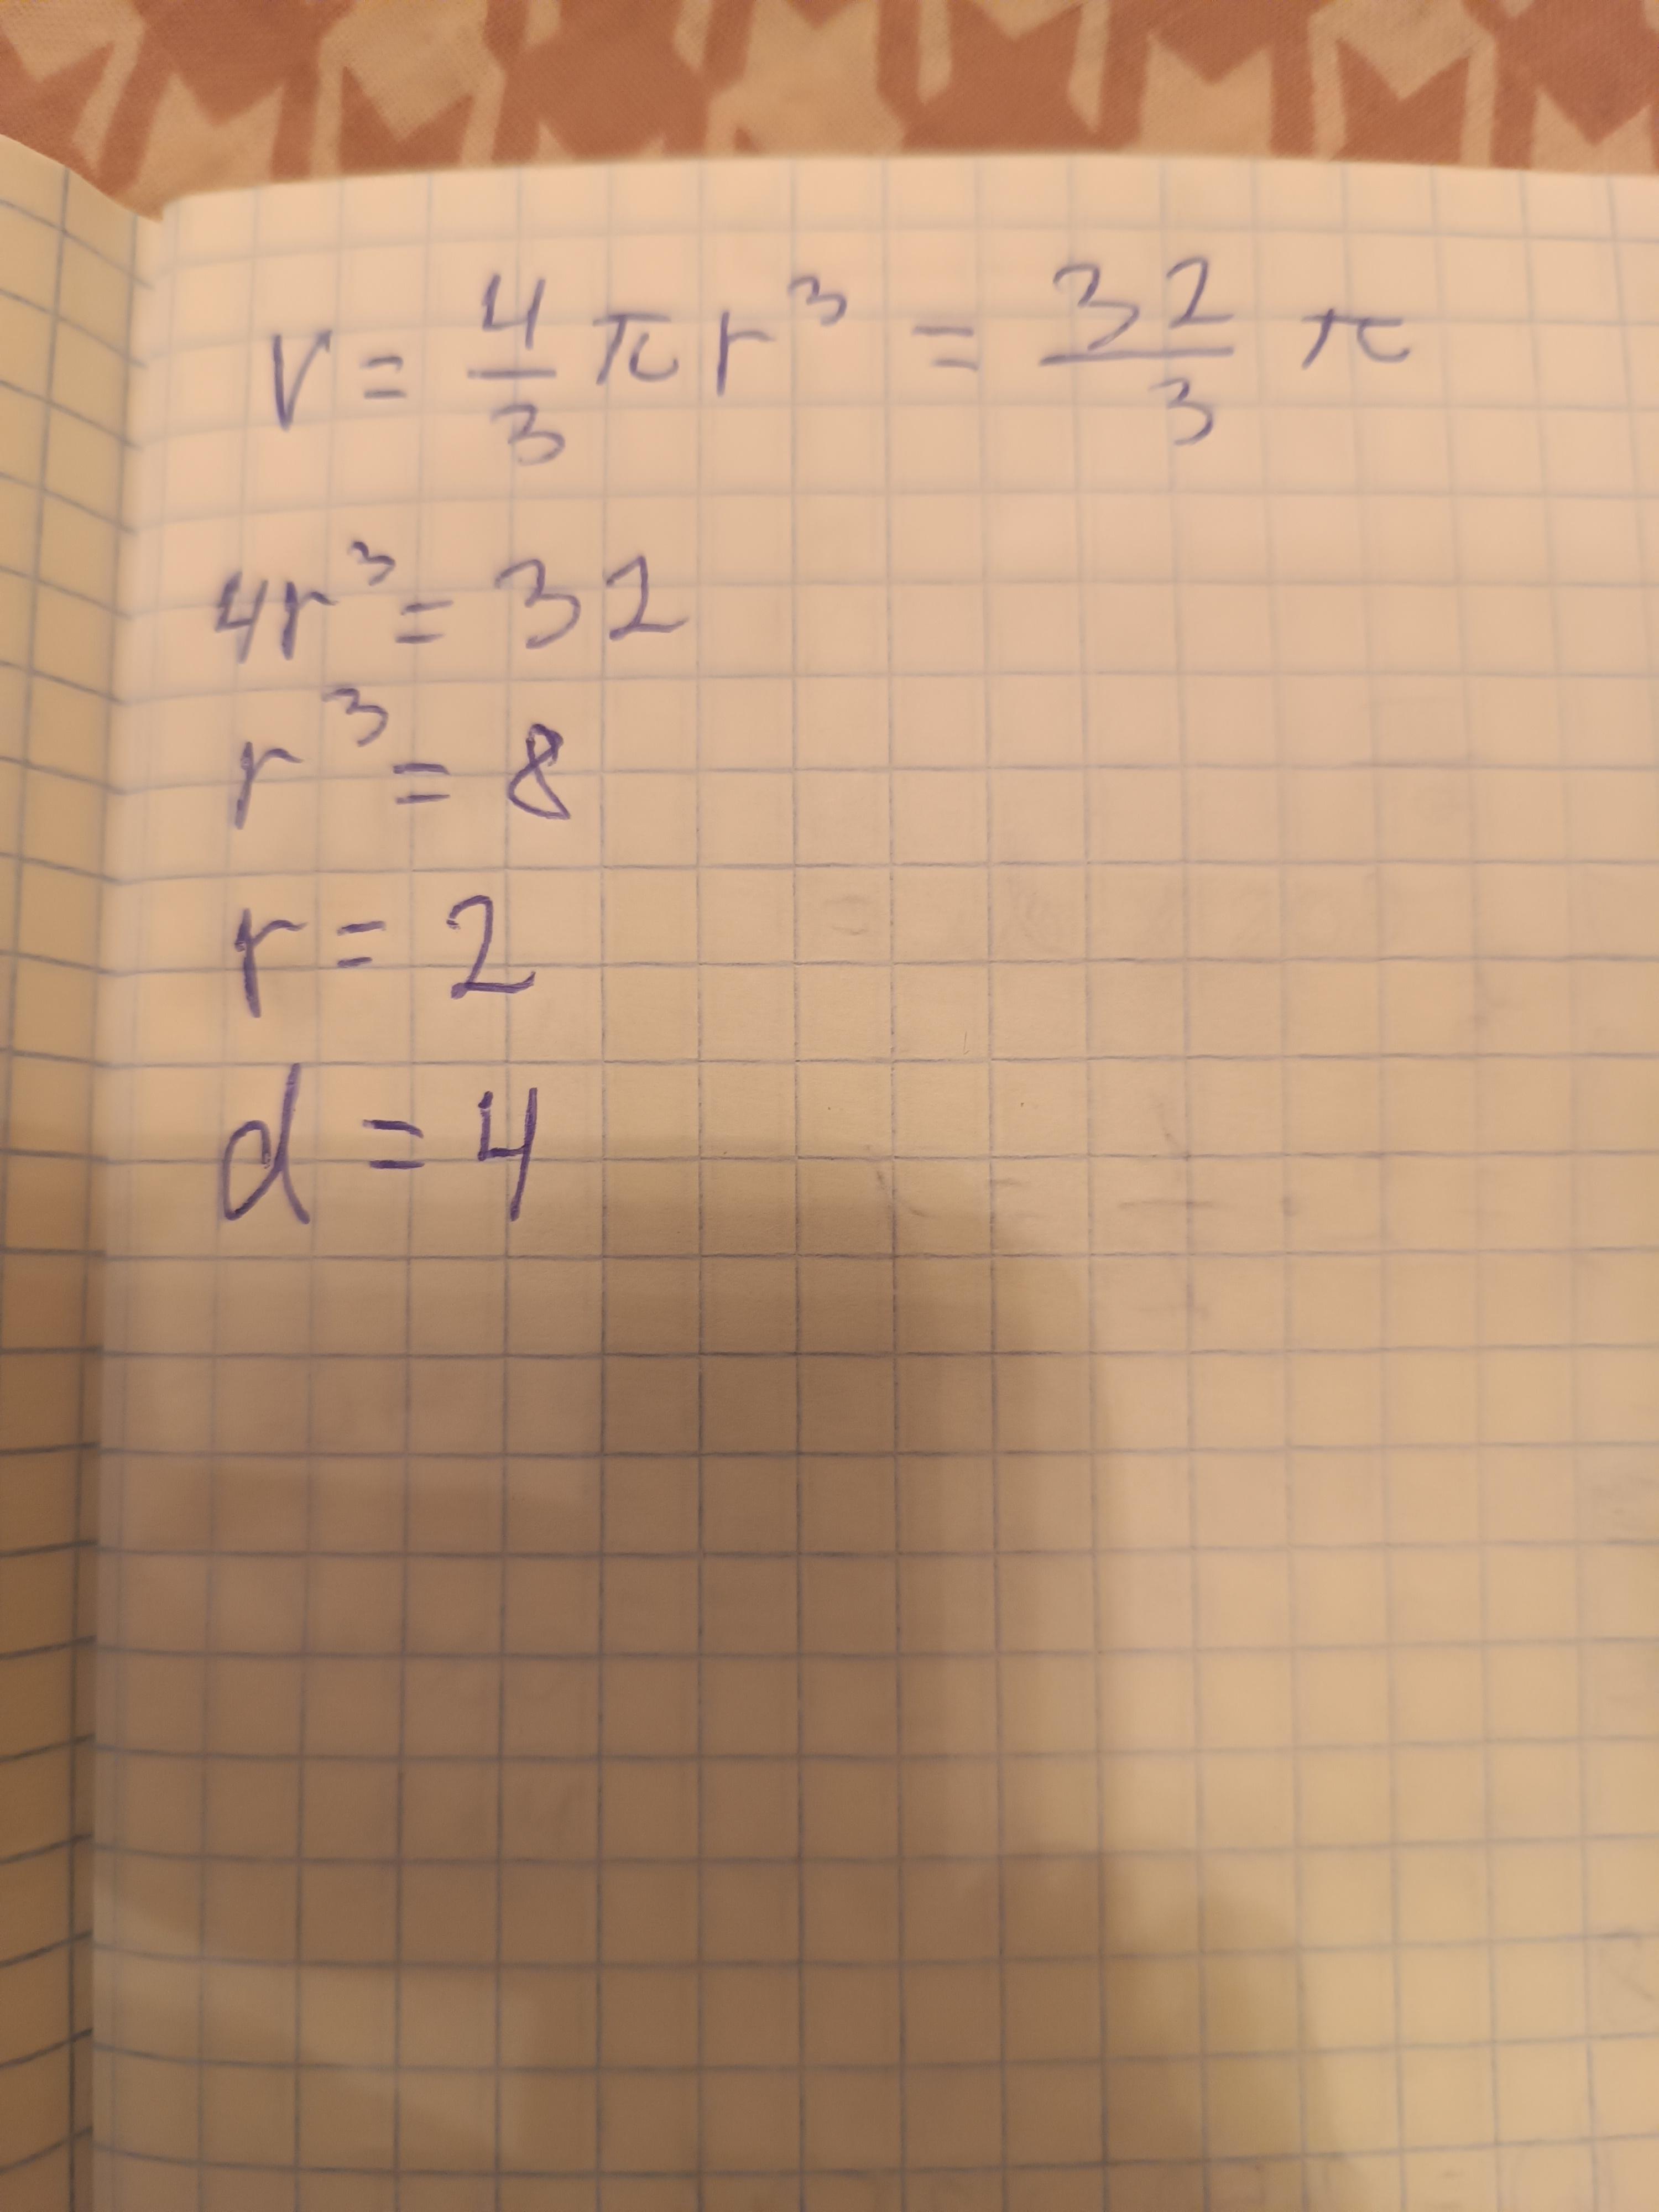 V = 4/3 π r³ = 32/3 π
4r³ = 32
r³ = 8
r = 2
d = 4